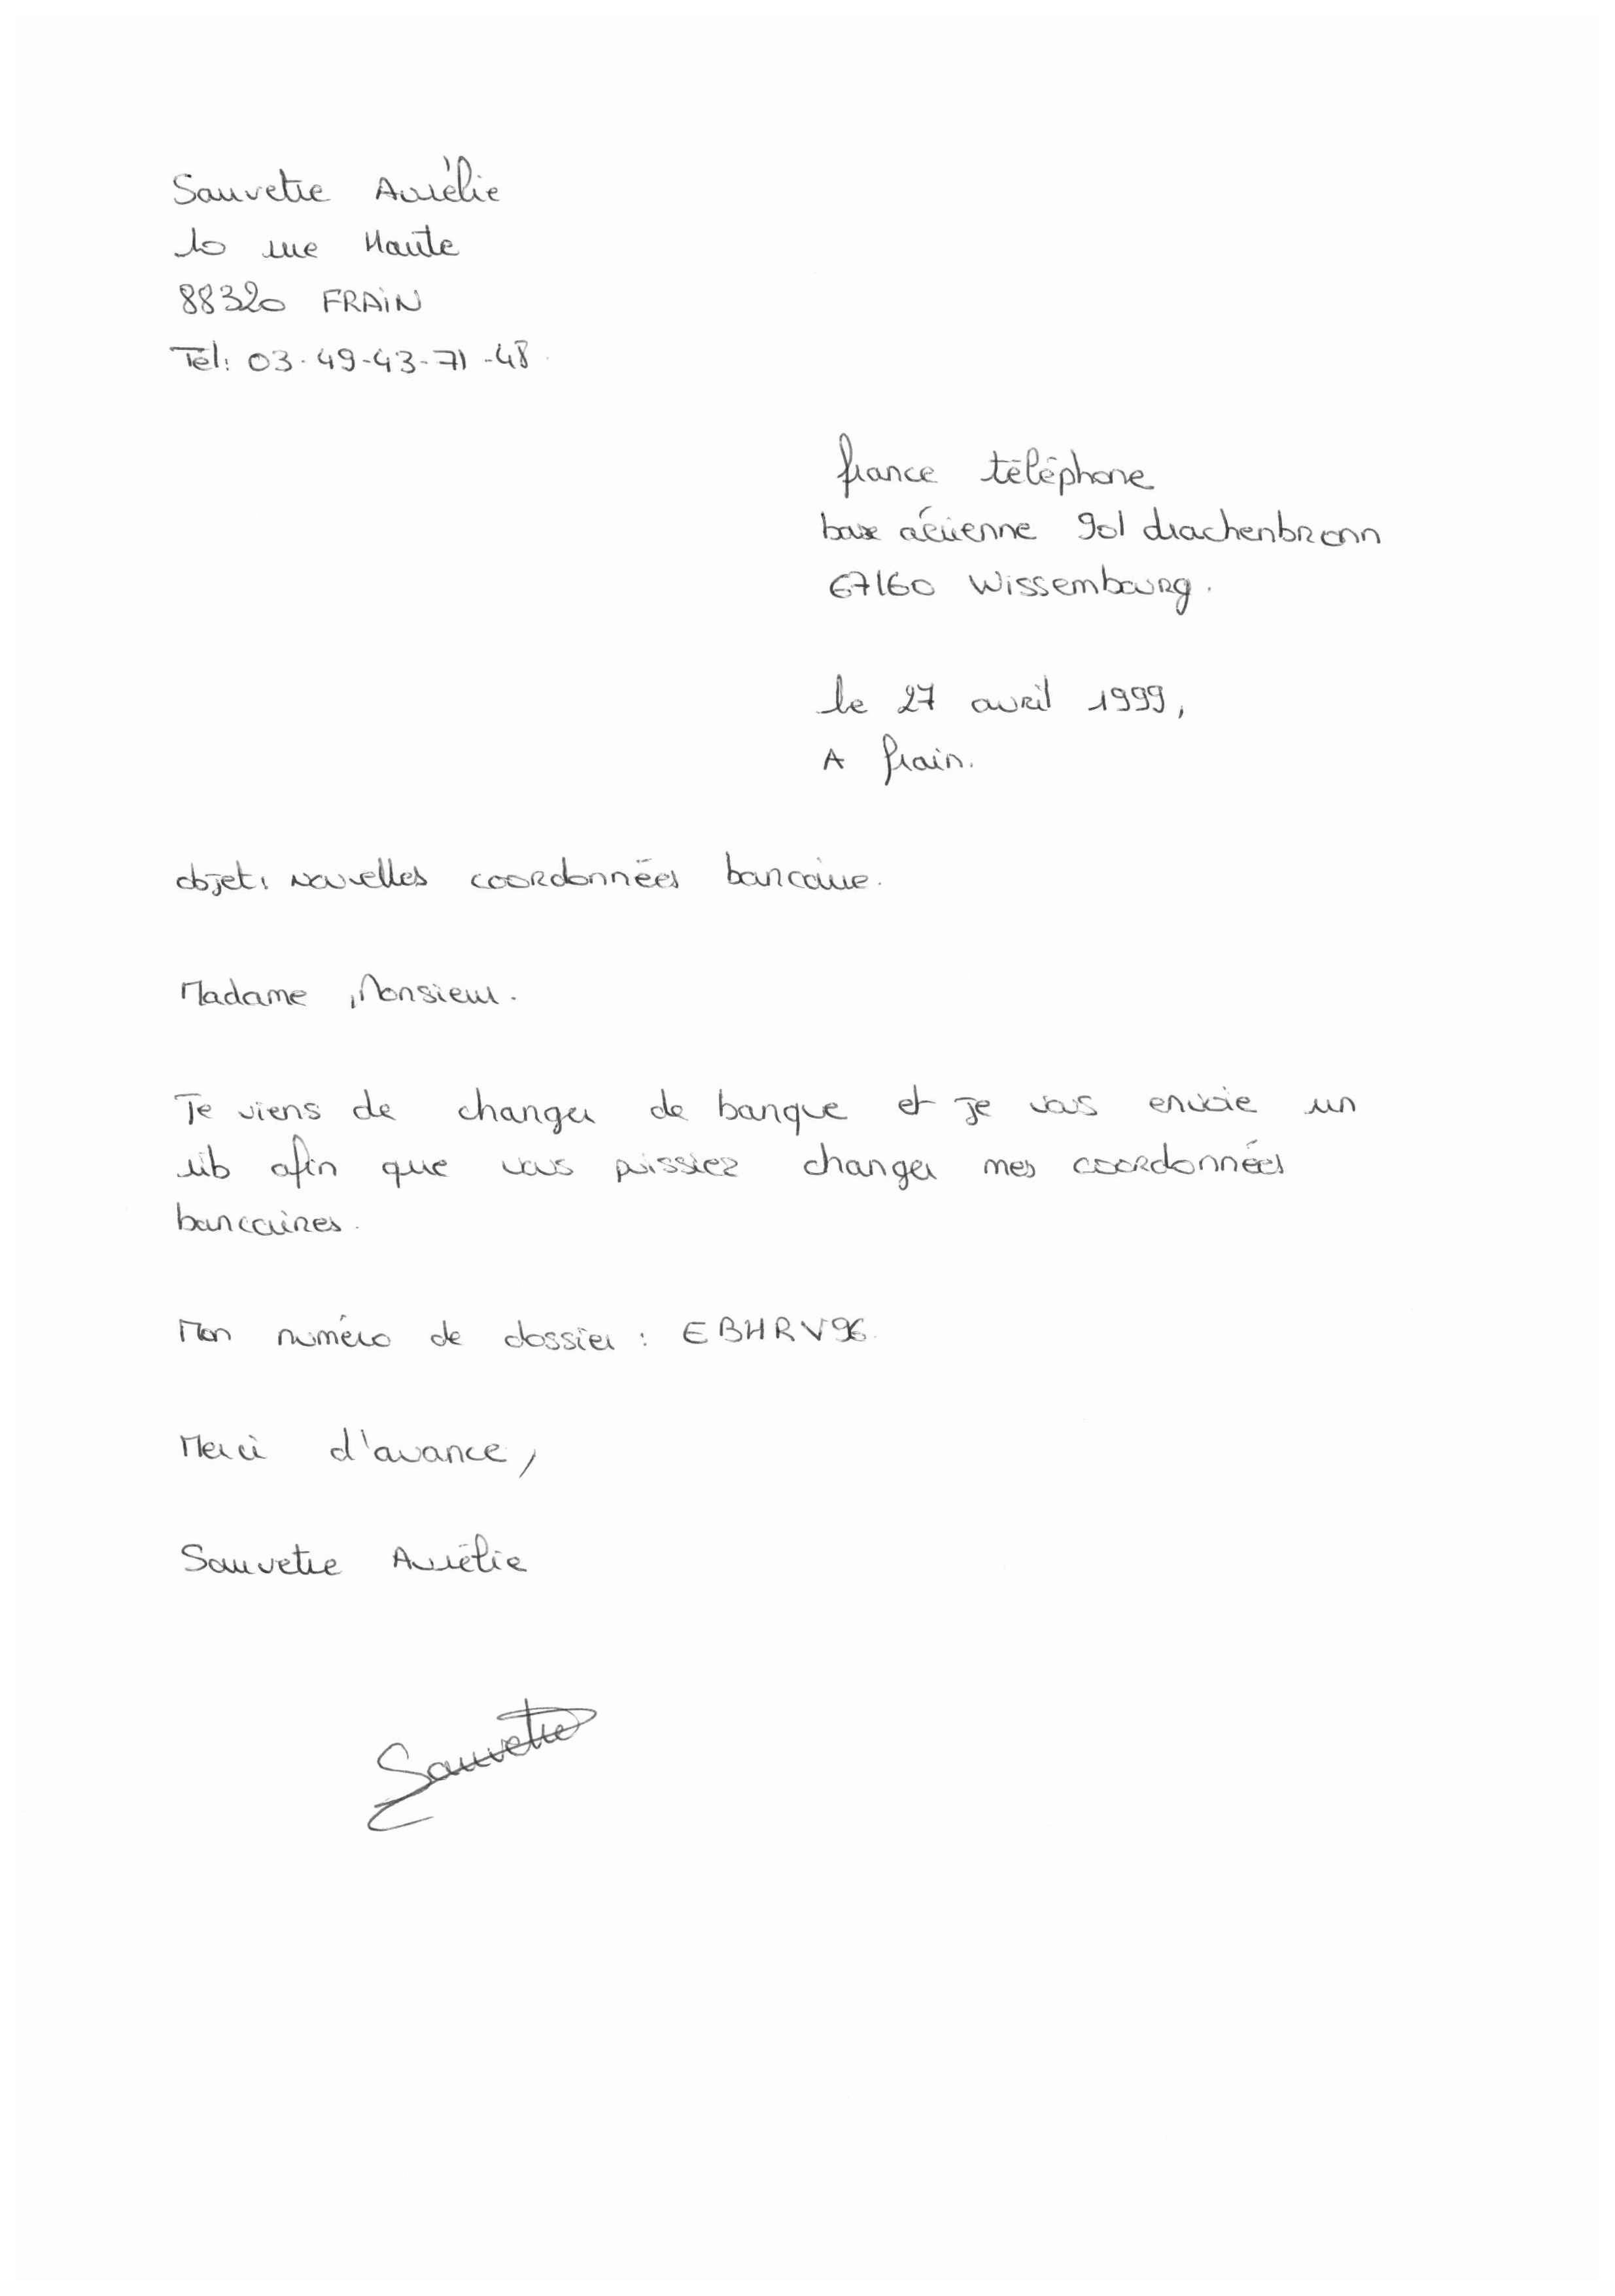 Sauvetre Aurélie
10 rue Haute
88320 FRAIN
Tél: 03-49-43-71-48
france téléphone
base aérienne 901 drachenbronn
67160 Wissembourg.
le 27 avril 1999,
A frain.
objet: nouvelles coordonnées bancaire.
Madame, Monsieur.
Je viens de changer de banque et je vous envoie un
rib afin que vous puissiez changer mes coordonnées
bancaires.
Mon numéro de dossier : EBHRV96.
Merci d'avance,
Sauvetre Aurélie
Sauvetre